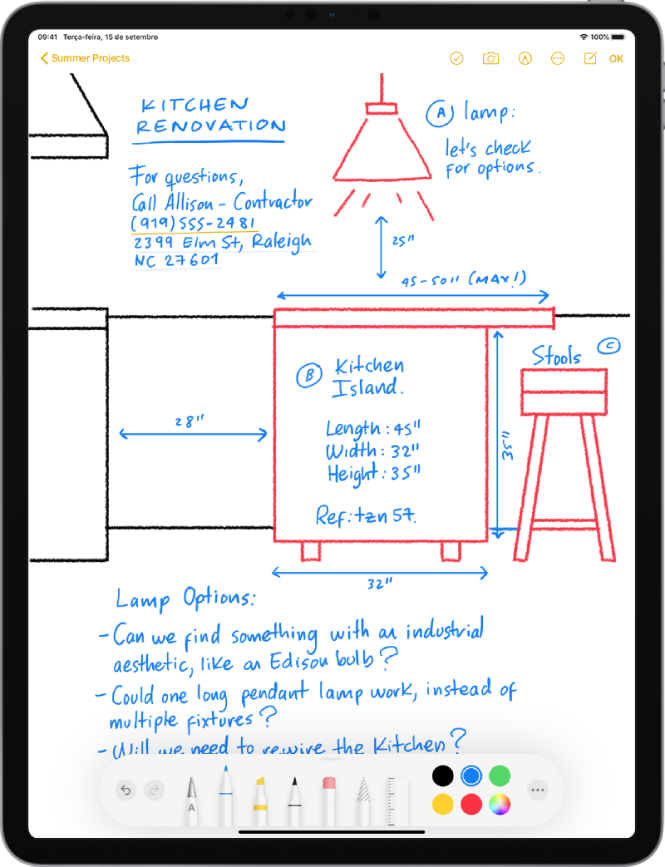 09:41 Terça-feira, 15 de setembro 100%
Summer Projects OK
KITCHEN
RENOVATION
For questions,
Call Allison - Contractor
(919)555-2481
2399 Elm St, Raleigh
NC 27601
A lamp:
let's check
for options.
25"
45-50" (MAX!)
B Kitchen
Island.
Length: 45"
Width: 32"
Height: 35"
Ref: tzn 57.
28"
35"
Stools C
32"
Lamp Options:
- Can we find something with an industrial
aesthetic, like an Edison bulb?
- Could one long pendant lamp work, instead of
multiple fixtures?
- Will we need to rewire the Kitchen?
A